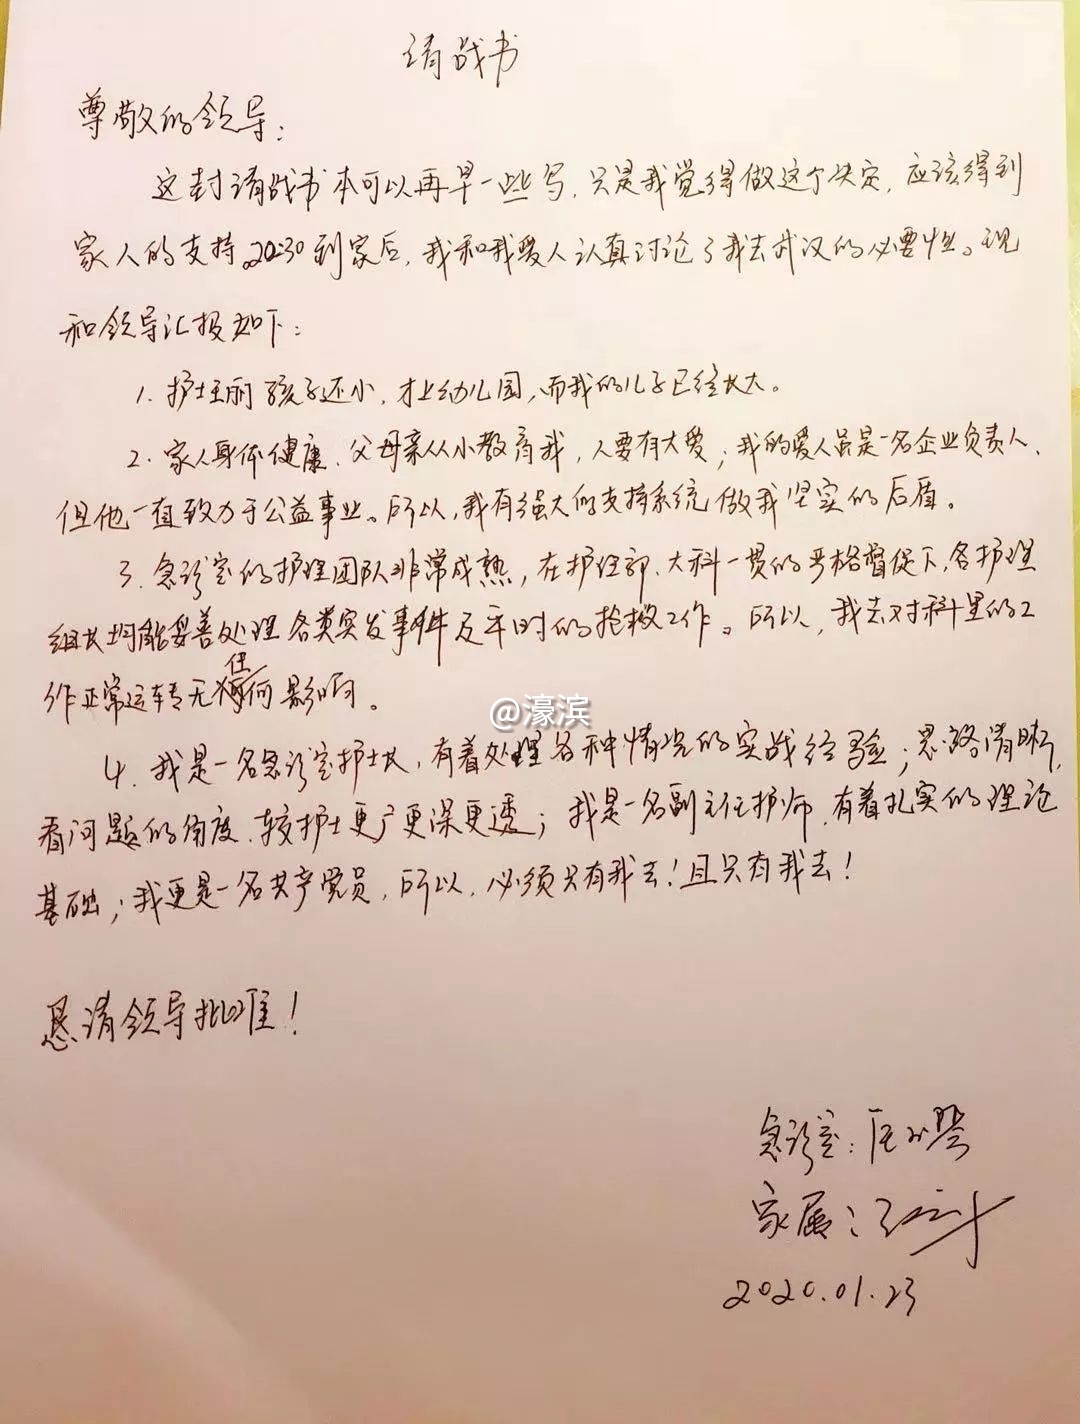 请战书
尊敬的领导：
这封请战书本可以再早一些写，只是我觉得做这个决定，应该得到
家人的支持。20:30到家后，我和我爱人认真讨论了我去武汉的必要性。现
和领导汇报如下：
1. 护士王丽孩子还小，才上幼儿园，而我的儿子已经长大。
2. 家人身体健康、父母亲从小教育我，人要有大爱；我的爱人虽是一名企业负责人、
但他一直致力于公益事业。所以，我有强大的支持系统做我坚实的后盾。
3. 急诊室的护理团队非常成熟，在护理部、大科一贯的严格督促下，各护理
组长均能妥善处理各类突发事件及平时的抢救工作。所以，我去对科里的工
作正常运转无任何影响。
@濠滨
4. 我是一名急诊室护士长，有着处理各种情况的实战经验；思路清晰，
看问题的角度、较护士更广更深更透；我是一名副主任护师，有着扎实的理论
基础；我更是一名共产党员，所以，必须只有我去！且只有我去！
恳请领导批准！
急诊室：
家属：
2020.01.23